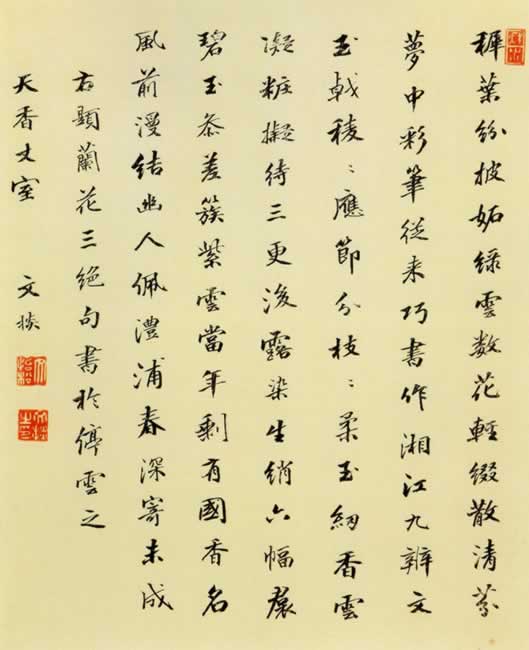 穉葉紛披妬綠雲數花輕綴散清芬
夢中彩筆從来巧書作湘江九辨文
玉戟稜〻應節分枝〻柔玉紉香雲
凝粧擬待三更後露染生綃六幅裠
碧玉叅差簇紫雲當年剩有國香名
風前漫結幽人佩澧浦春深寄未成
右題蘭花三絕句書於停雲之
天香丈室 文掞